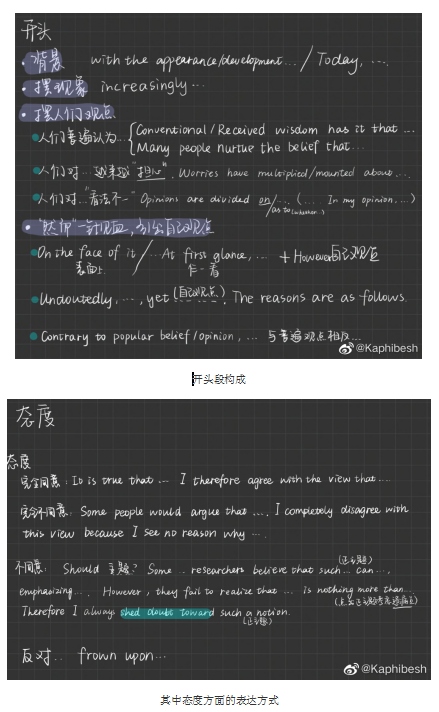 开头
• 背景 with the appearance/development... / Today, ...
• 摆现象 increasingly...
• 摆人们观点
人们普遍认为... { Conventional/Received wisdom has it that ...
Many people nurture the belief that...
人们对... 越来越"担心". Worries have multiplied/mounted about....
人们对.."看法不一" Opinions are divided on/.... (.... In my opinion,...)
/as to (whether..)
• "然而" 一针见血, 引出自己观点
On the face of it /... At first glance, ... + However自己观点
表面上 乍一看
Undoubtedly, ..., yet (自己观点). The reasons are as follows.
Contrary to popular belief/opinion, ... 与普遍观点相反...
@Kaphibesh
开头段构成
态度
态度
完全同意: It is true that ... I therefore agree with the view that....
完全不同意: Some people would argue that .... I completely disagree with
this view because I see no reason why ....
不同意: Should 主题? Some .. researchers believe that such... can...,
(还主题)
emphasizing.... However, they fail to realize that ... is nothing more than...
Therefore I always shed doubt toward such a notion.
(还主题)
反对.. frown upon...
@Kaphibesh
其中态度方面的表达方式